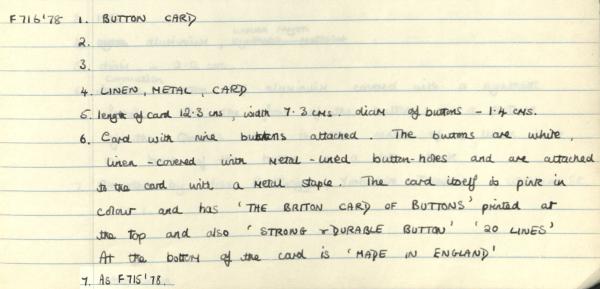 F716'78 1. BUTTON CARD
2.
3.
4. LINEN, METAL, CARD
5. length of card 12.3 cms, width 7.3 cms. diam of buttons - 1.4 cms.
6. Card with nine buttons attached. The buttons are white,
linen-covered with metal-lined button-holes and are attached
to the card with a metal staple. The card itself is pink in
colour and has 'THE BRITON CARD OF BUTTONS' printed at
the top and also 'STRONG & DURABLE BUTTON' '20 LINES'
At the bottom of the card is 'MADE IN ENGLAND'
7. As F715'78.